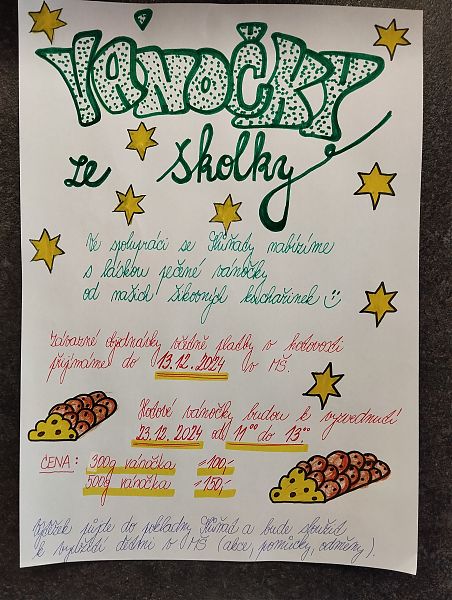 VÁNOČKY
ze školky
Ve spolupráci se Skřiňady nabízíme
s láskou pečené vánočky
od našich šikovných kuchařinek
Závazné objednávky včetně platby v hotovosti
přijímáme do 13.12.2024 v MŠ.
Hotové vánočky budou k vyzvednutí
23.12.2024 od 11⁰⁰ do 13⁰⁰
CENA: 300g vánočka =100,-
500g vánočka =150,-
půjde do pokladny a bude sloužit
k vyplácení dětmi v MŠ (akce, pomůcky, odměny).